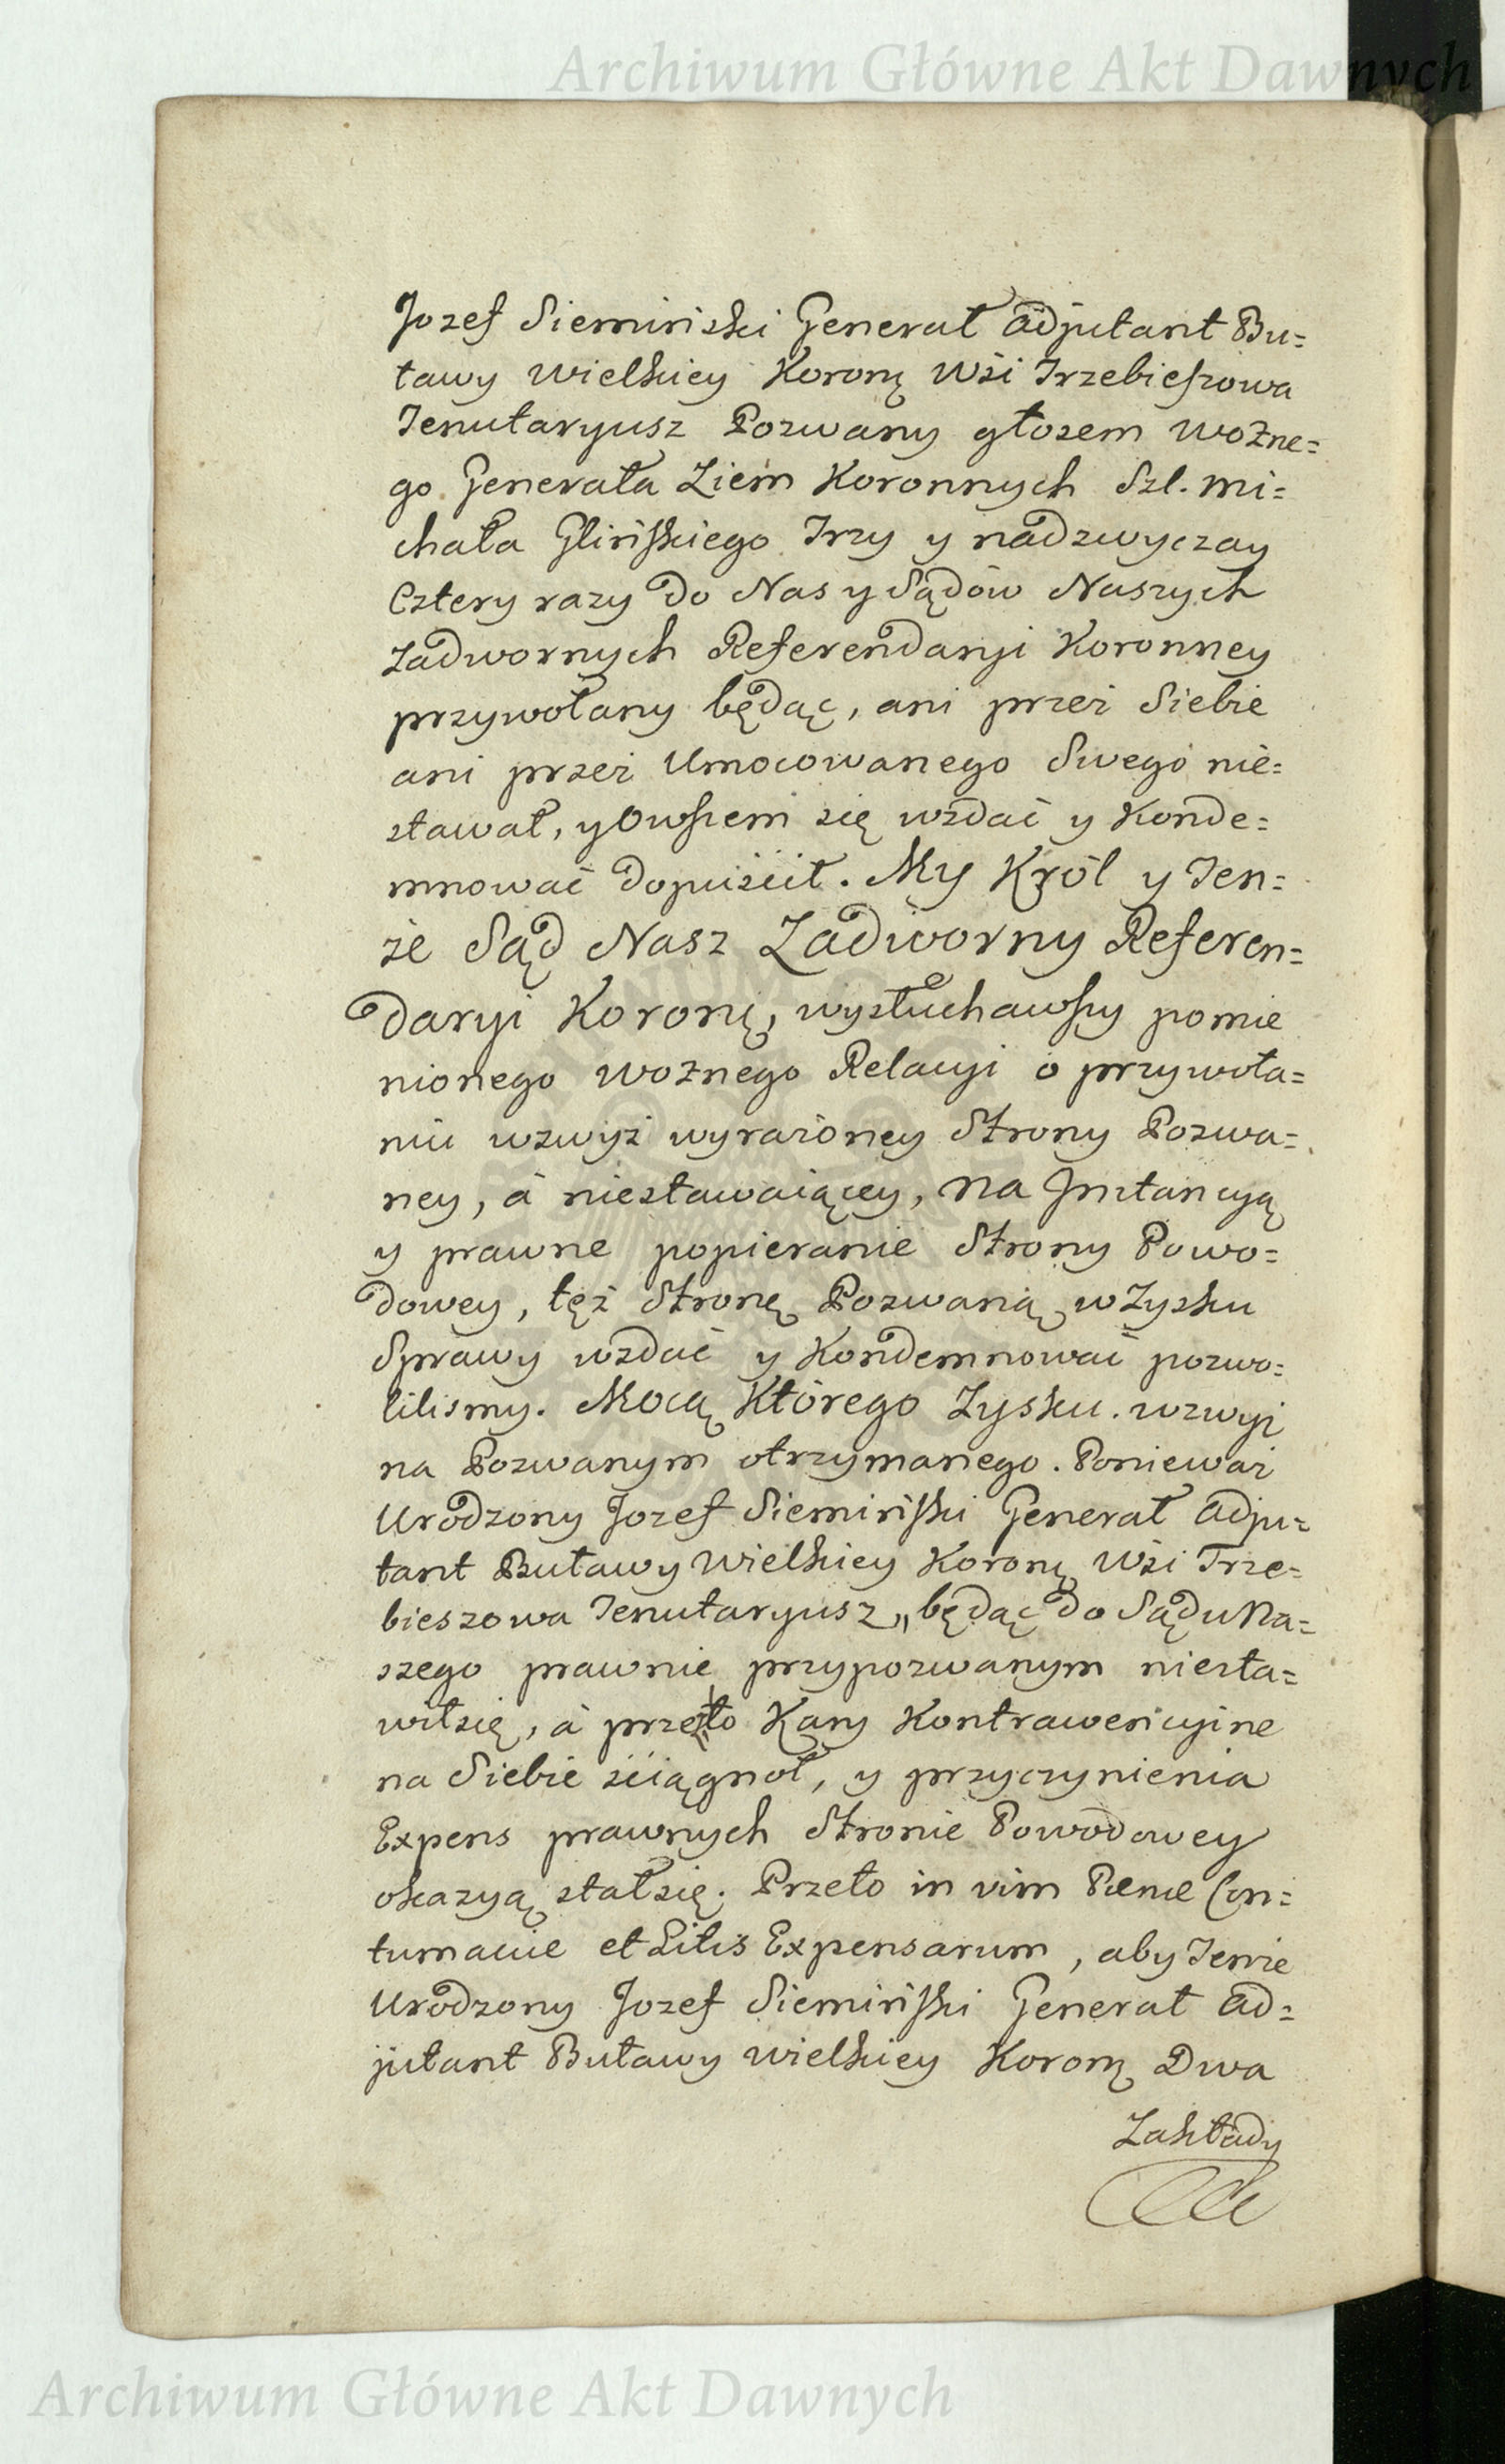 Archiwum Główne Akt Dawnych
Jozef Siemiński Generał Adjutant Bu=
ławy Wielkiey Koronę Wśi Trzebieszowa
Tenutaryusz Pozwany głosem Wozne=
go Generała Ziem Koronnych Szl. Mi=
chała Glińskiego Trzy y nadzwyczay
Cztery razy do Nas y Sądów Naszych
Zadwornych Referendaryi Koronney
przywołany będąc, ani przez Siebie
ani przez Umocowanego Swego nie=
stawał, y Owszem się wzdać y Konde=
mnować dopuścił. My Król y Ten=
że Sąd Nasz Zadworny Referen=
daryi Koronę, wysłuchawszy pomie
nionego Woznego Relacyi o przywoła=
niu wzwyż wyrażoney Strony Pozwa=
ney, à niestawaiącey, Na Jnstancyą
y prawne popieranie Strony Powo=
dowey, tęż Stronę Pozwaną w Zysku
Sprawy wzdać y Kondemnować pozwo=
lilismy. Mocą Którego Zysku. wzwyż
na Pozwanym otrzymanego. Ponieważ
Urodzony Jozef Siemiński Generał Adju=
tant Buławy Wielkiey Koronę Wśi Trze=
bieszowa Tenutaryusz, będąc do Sądu Na=
szego prawnie przypozwanym niesta=
wiłsię, à przeto Kary Kontrawencyine
na Siebie ściągnoł, y przyczynienia
Expens prawnych Stronie Powodowey
okazyą stałsię. Przeto in vim Pænæ Con=
tumaciæ et Litis Expensarum, aby Tenże
Urodzony Jozef Siemiński Generał Ad=
jutant Buławy Wielkiey Koronę Dwa
Zakłady
Archiwum Główne Akt Dawnych